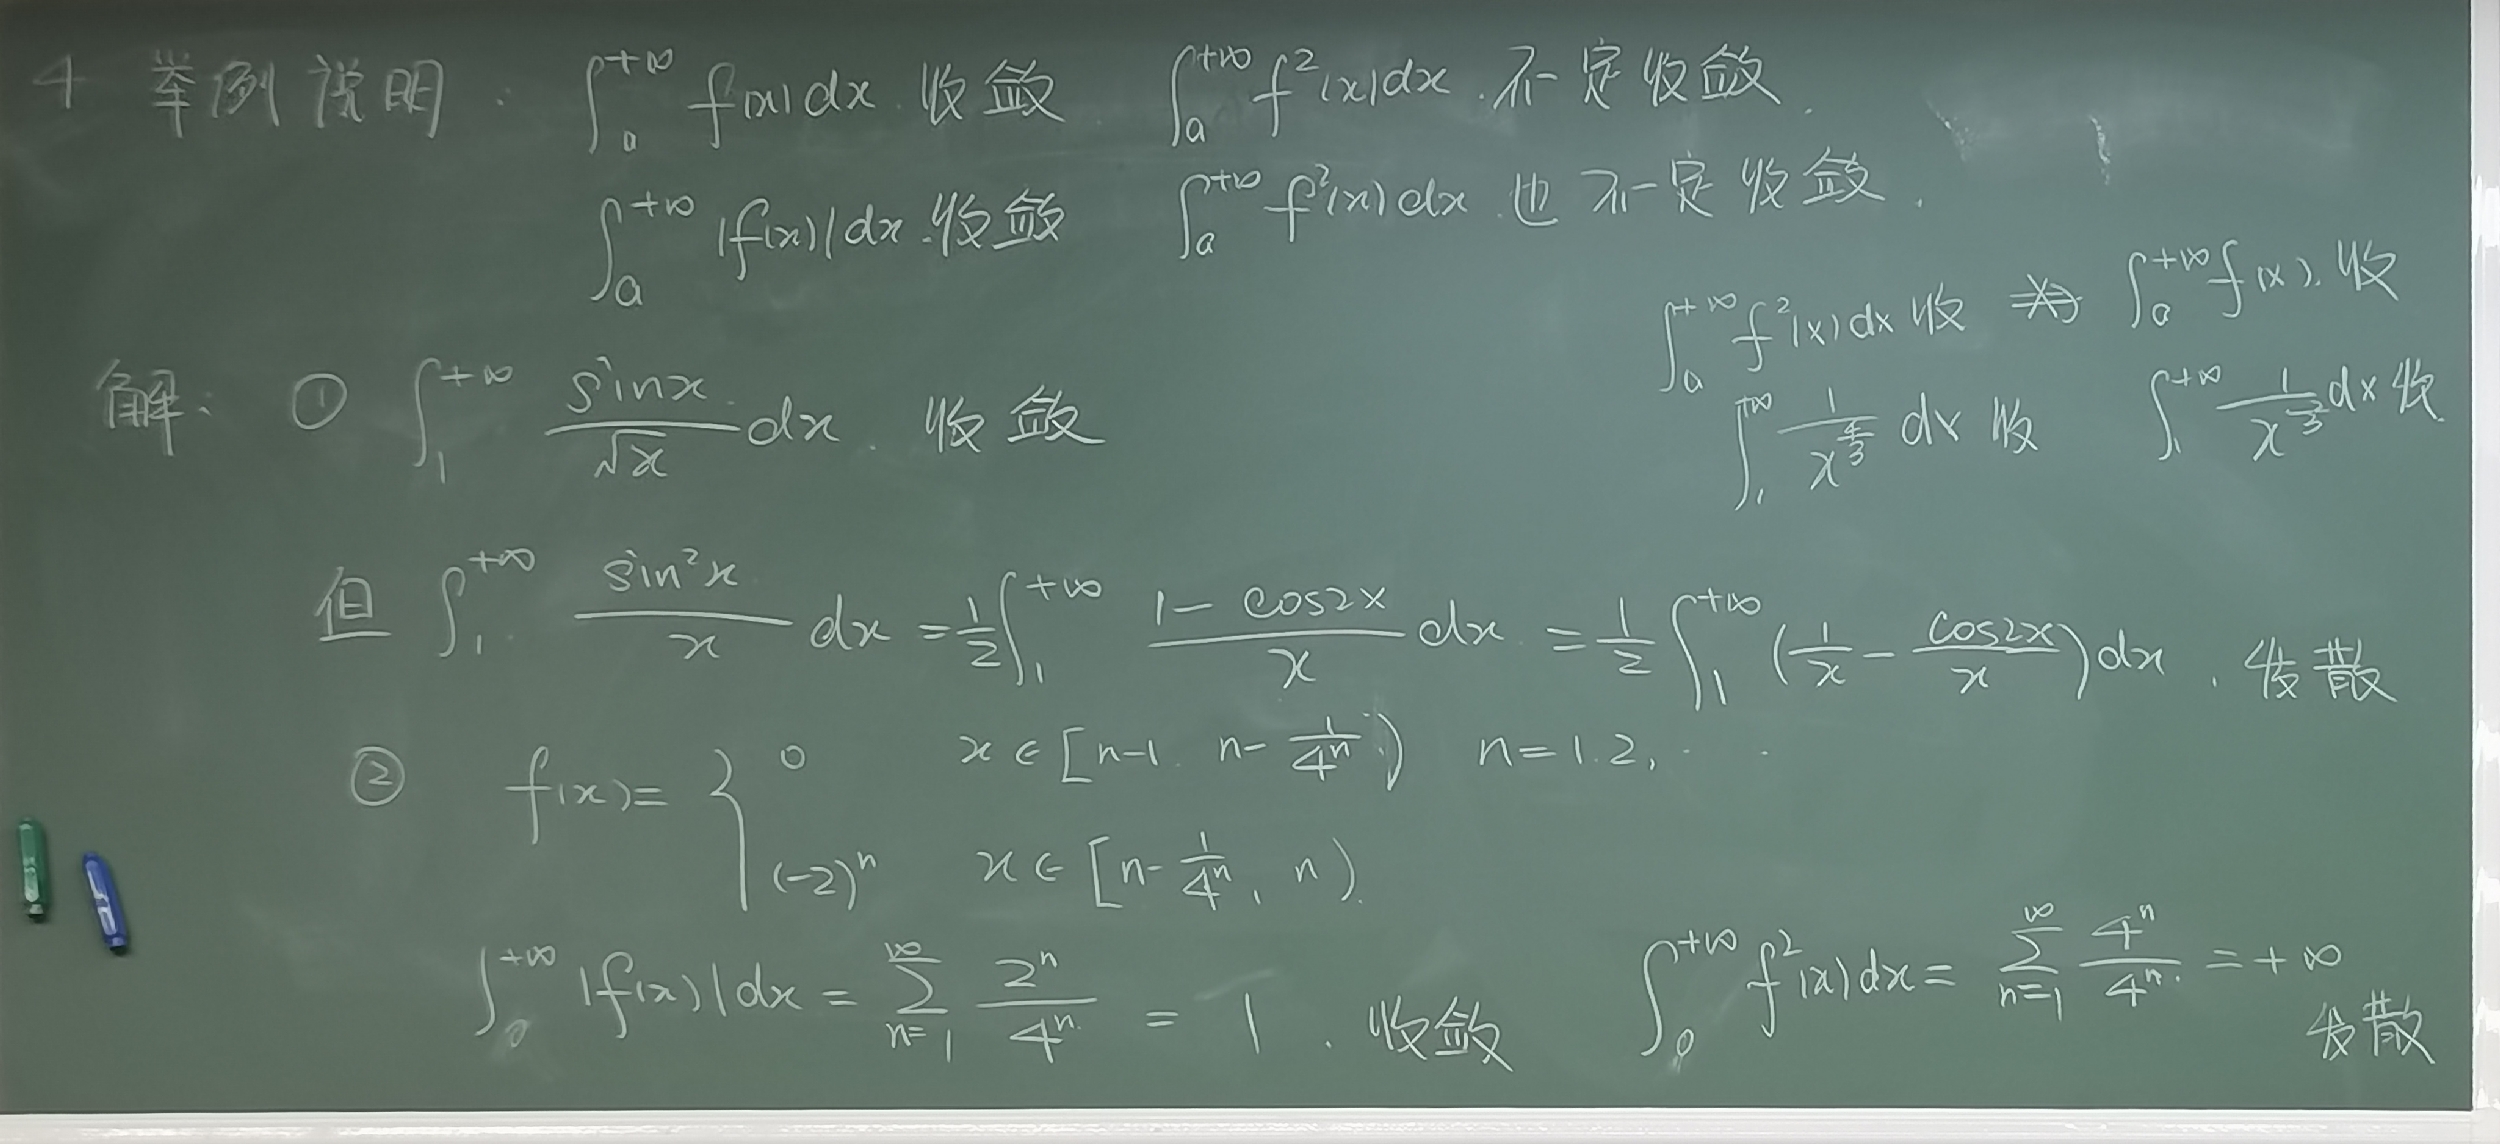 4 举例说明. ∫_a^{+∞} f(x)dx 收敛 ∫_a^{+∞} f²(x)dx 不一定收敛.
∫_a^{+∞} |f(x)|dx 收敛 ∫_a^{+∞} f²(x)dx 也不一定收敛.
∫_a^{+∞} f²(x)dx 收 ⇏ ∫_a^{+∞} f(x). 收
∫_1^{+∞} 1/x^{4/3} dx 收 ∫_1^{+∞} 1/x^{2/3} dx 收
解: ① ∫_1^{+∞} sinx/√x dx. 收敛
但 ∫_1^{+∞} sin²x/x dx = 1/2 ∫_1^{+∞} (1-cos2x)/x dx = 1/2 ∫_1^{+∞} (1/x - cos2x/x)dx. 发散
② f(x)= { 0 x∈[n-1, n-1/4ⁿ) n=1.2,···
(-2)ⁿ x∈[n-1/4ⁿ, n).
∫_0^{+∞} |f(x)|dx = ∑_{n=1}^{∞} 2ⁿ/4ⁿ = 1. 收敛 ∫_0^{+∞} f²(x)dx = ∑_{n=1}^{∞} 4ⁿ/4ⁿ = +∞
发散